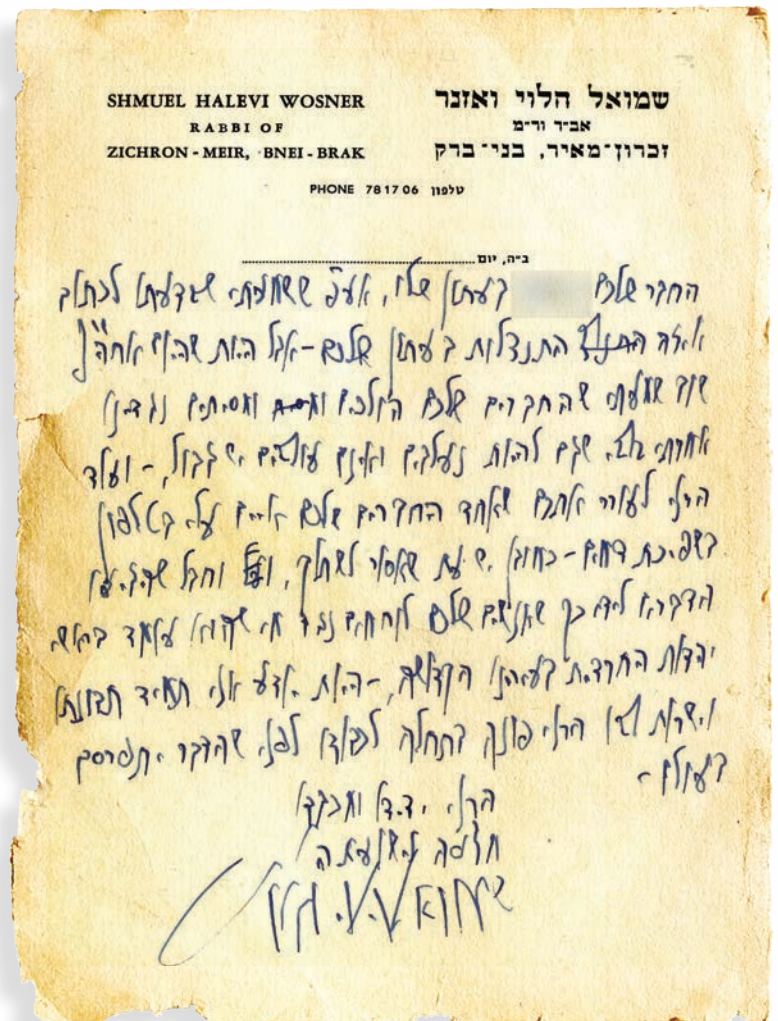 SHMUEL HALEVI WOSNER
RABBI OF
ZICHRON - MEIR, BNEI - BRAK
שמואל הלוי ואזנר
אב״ד ור״מ
זכרון־מאיר, בני־ברק
PHONE 781706 טלפון
ב״ה, יום
החבר שלכם בעתון שלו, אע"פ ששמעתי שבדעתו לכתוב
איזה התנצלות בעתון שלכם - אבל היות שהיום אחה"צ
שוב שמעתי שהחברים שלכם הולכים ומסיתים נגדינו
אמרתי שגם להיות נעלבים ואינם עולבים יש גבול, - ועוד
הרני לעורר אתכם שאחד החברים שלכם איים עלי בטלפון
בשפיכת דמים - כמובן יש עת שאסור לשתוק, וחבל שהגיעו
הדברים לידי כך שאנשים שלכם לוחמים נגד מי שהוא עומד בראש
יהדות החרדית בעירנו הקדושה, - היות יודע אני תמיד תבונתו
וישרות לבו הרני פונה בתחלה לכבודו לפני שהדבר יתפרסם
בעולם -
הרני ידידו ומכבדו
מצפה לישועת ה'
שמואל